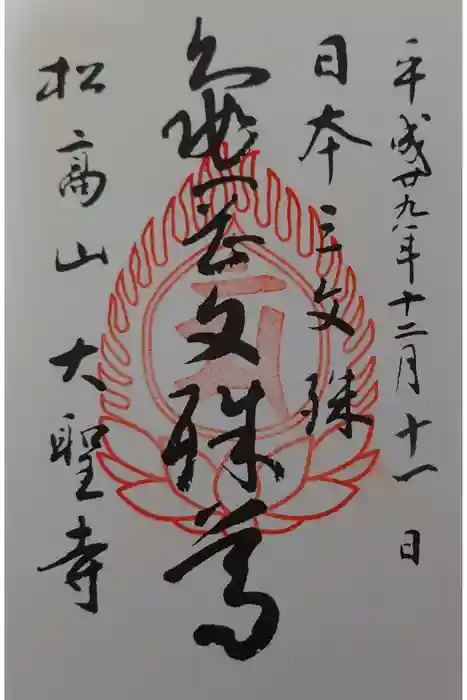 平成廿九年十二月十一日
日本三文殊
亀岡文殊尊
松高山大聖寺